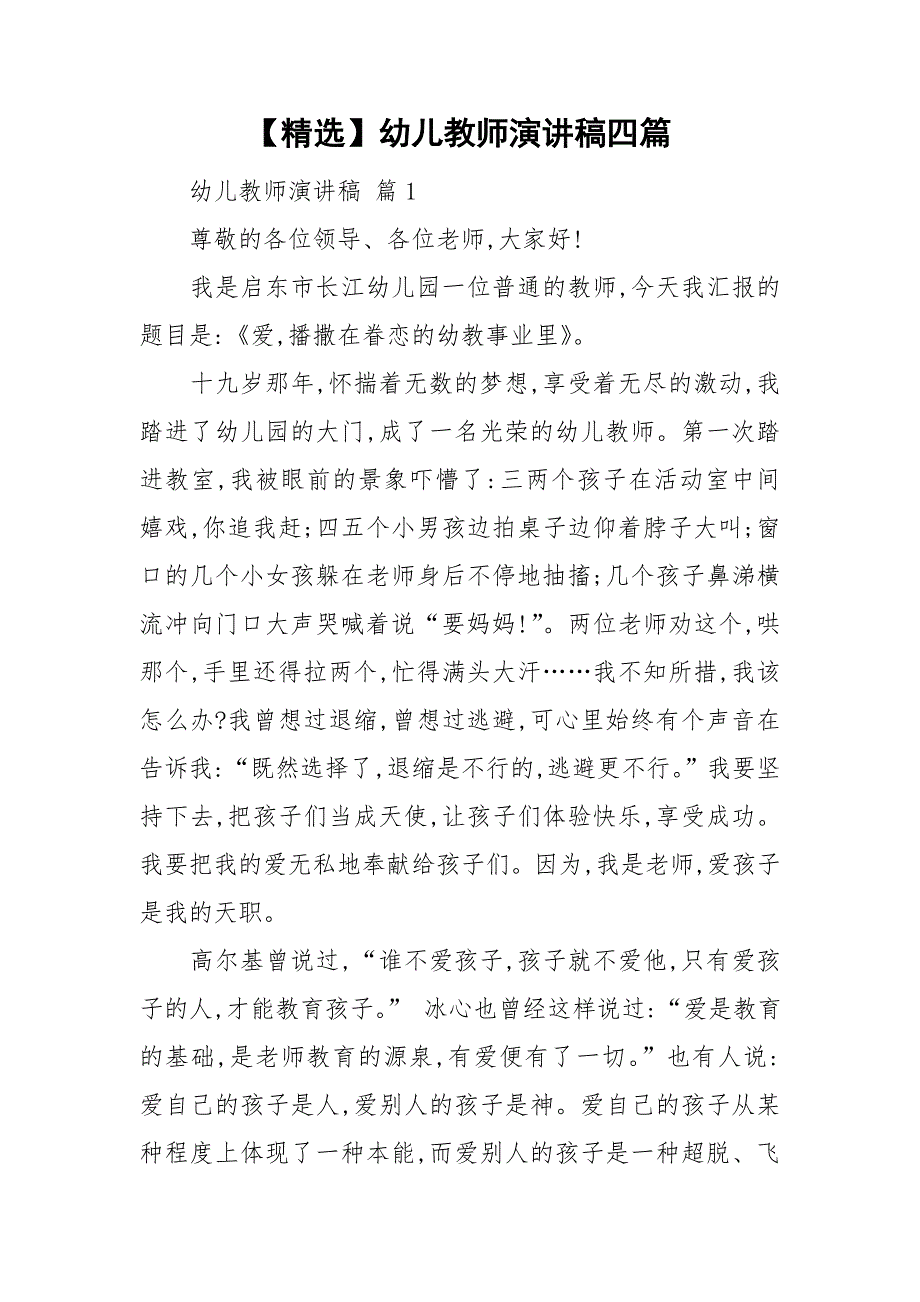 【精选】幼儿教师演讲稿四篇
幼儿教师演讲稿 篇1
尊敬的各位领导、各位老师,大家好!
我是启东市长江幼儿园一位普通的教师,今天我汇报的
题目是:《爱,播撒在眷恋的幼教事业里》。
十九岁那年,怀揣着无数的梦想,享受着无尽的激动,我
踏进了幼儿园的大门,成了一名光荣的幼儿教师。第一次踏
进教室,我被眼前的景象吓懵了:三两个孩子在活动室中间
嬉戏,你追我赶;四五个小男孩边拍桌子边仰着脖子大叫;窗
口的几个小女孩躲在老师身后不停地抽搐;几个孩子鼻涕横
流冲向门口大声哭喊着说“要妈妈!”。两位老师劝这个,哄
那个,手里还得拉两个,忙得满头大汗……我不知所措,我该
怎么办?我曾想过退缩,曾想过逃避,可心里始终有个声音在
告诉我:“既然选择了,退缩是不行的,逃避更不行。”我要坚
持下去,把孩子们当成天使,让孩子们体验快乐,享受成功。
我要把我的爱无私地奉献给孩子们。因为,我是老师,爱孩子
是我的天职。
高尔基曾说过,“谁不爱孩子,孩子就不爱他,只有爱孩
子的人,才能教育孩子。” 冰心也曾经这样说过:“爱是教育
的基础,是老师教育的源泉,有爱便有了一切。”也有人说:
爱自己的孩子是人,爱别人的孩子是神。爱自己的孩子从某
种程度上体现了一种本能,而爱别人的孩子是一种超脱、飞